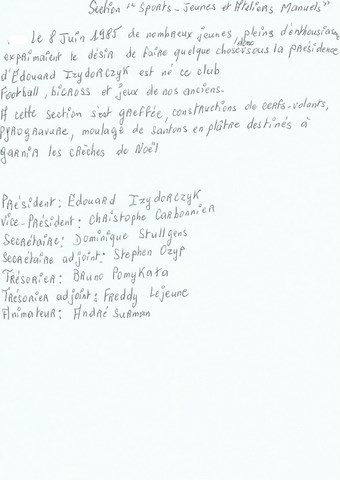 Section "Sports - Jeunes et Ateliers Manuels"
Le 8 Juin 1985 de nombreux jeunes, pleins d'enthousiasme
exprimaient le désir de faire quelque chose, donc sous la présidence
d'Edouard Izydorczyk est né ce club
Football, bicross et jeux de nos anciens.
A cette section s'est greffée, constructions de cerfs-volants,
pyrogravure, moulage de santons en plâtre destinés à
garnir les crèches de Noël
Président : Edouard Izydorczyk
Vice-Président : Christophe Carbonnier
Secrétaire : Dominique Stullgens
Secrétaire adjoint : Stephen Ozyp
Trésorier : Bruno Pomykata
Trésorier adjoint : Freddy Lejeune
Animateur : André Surman